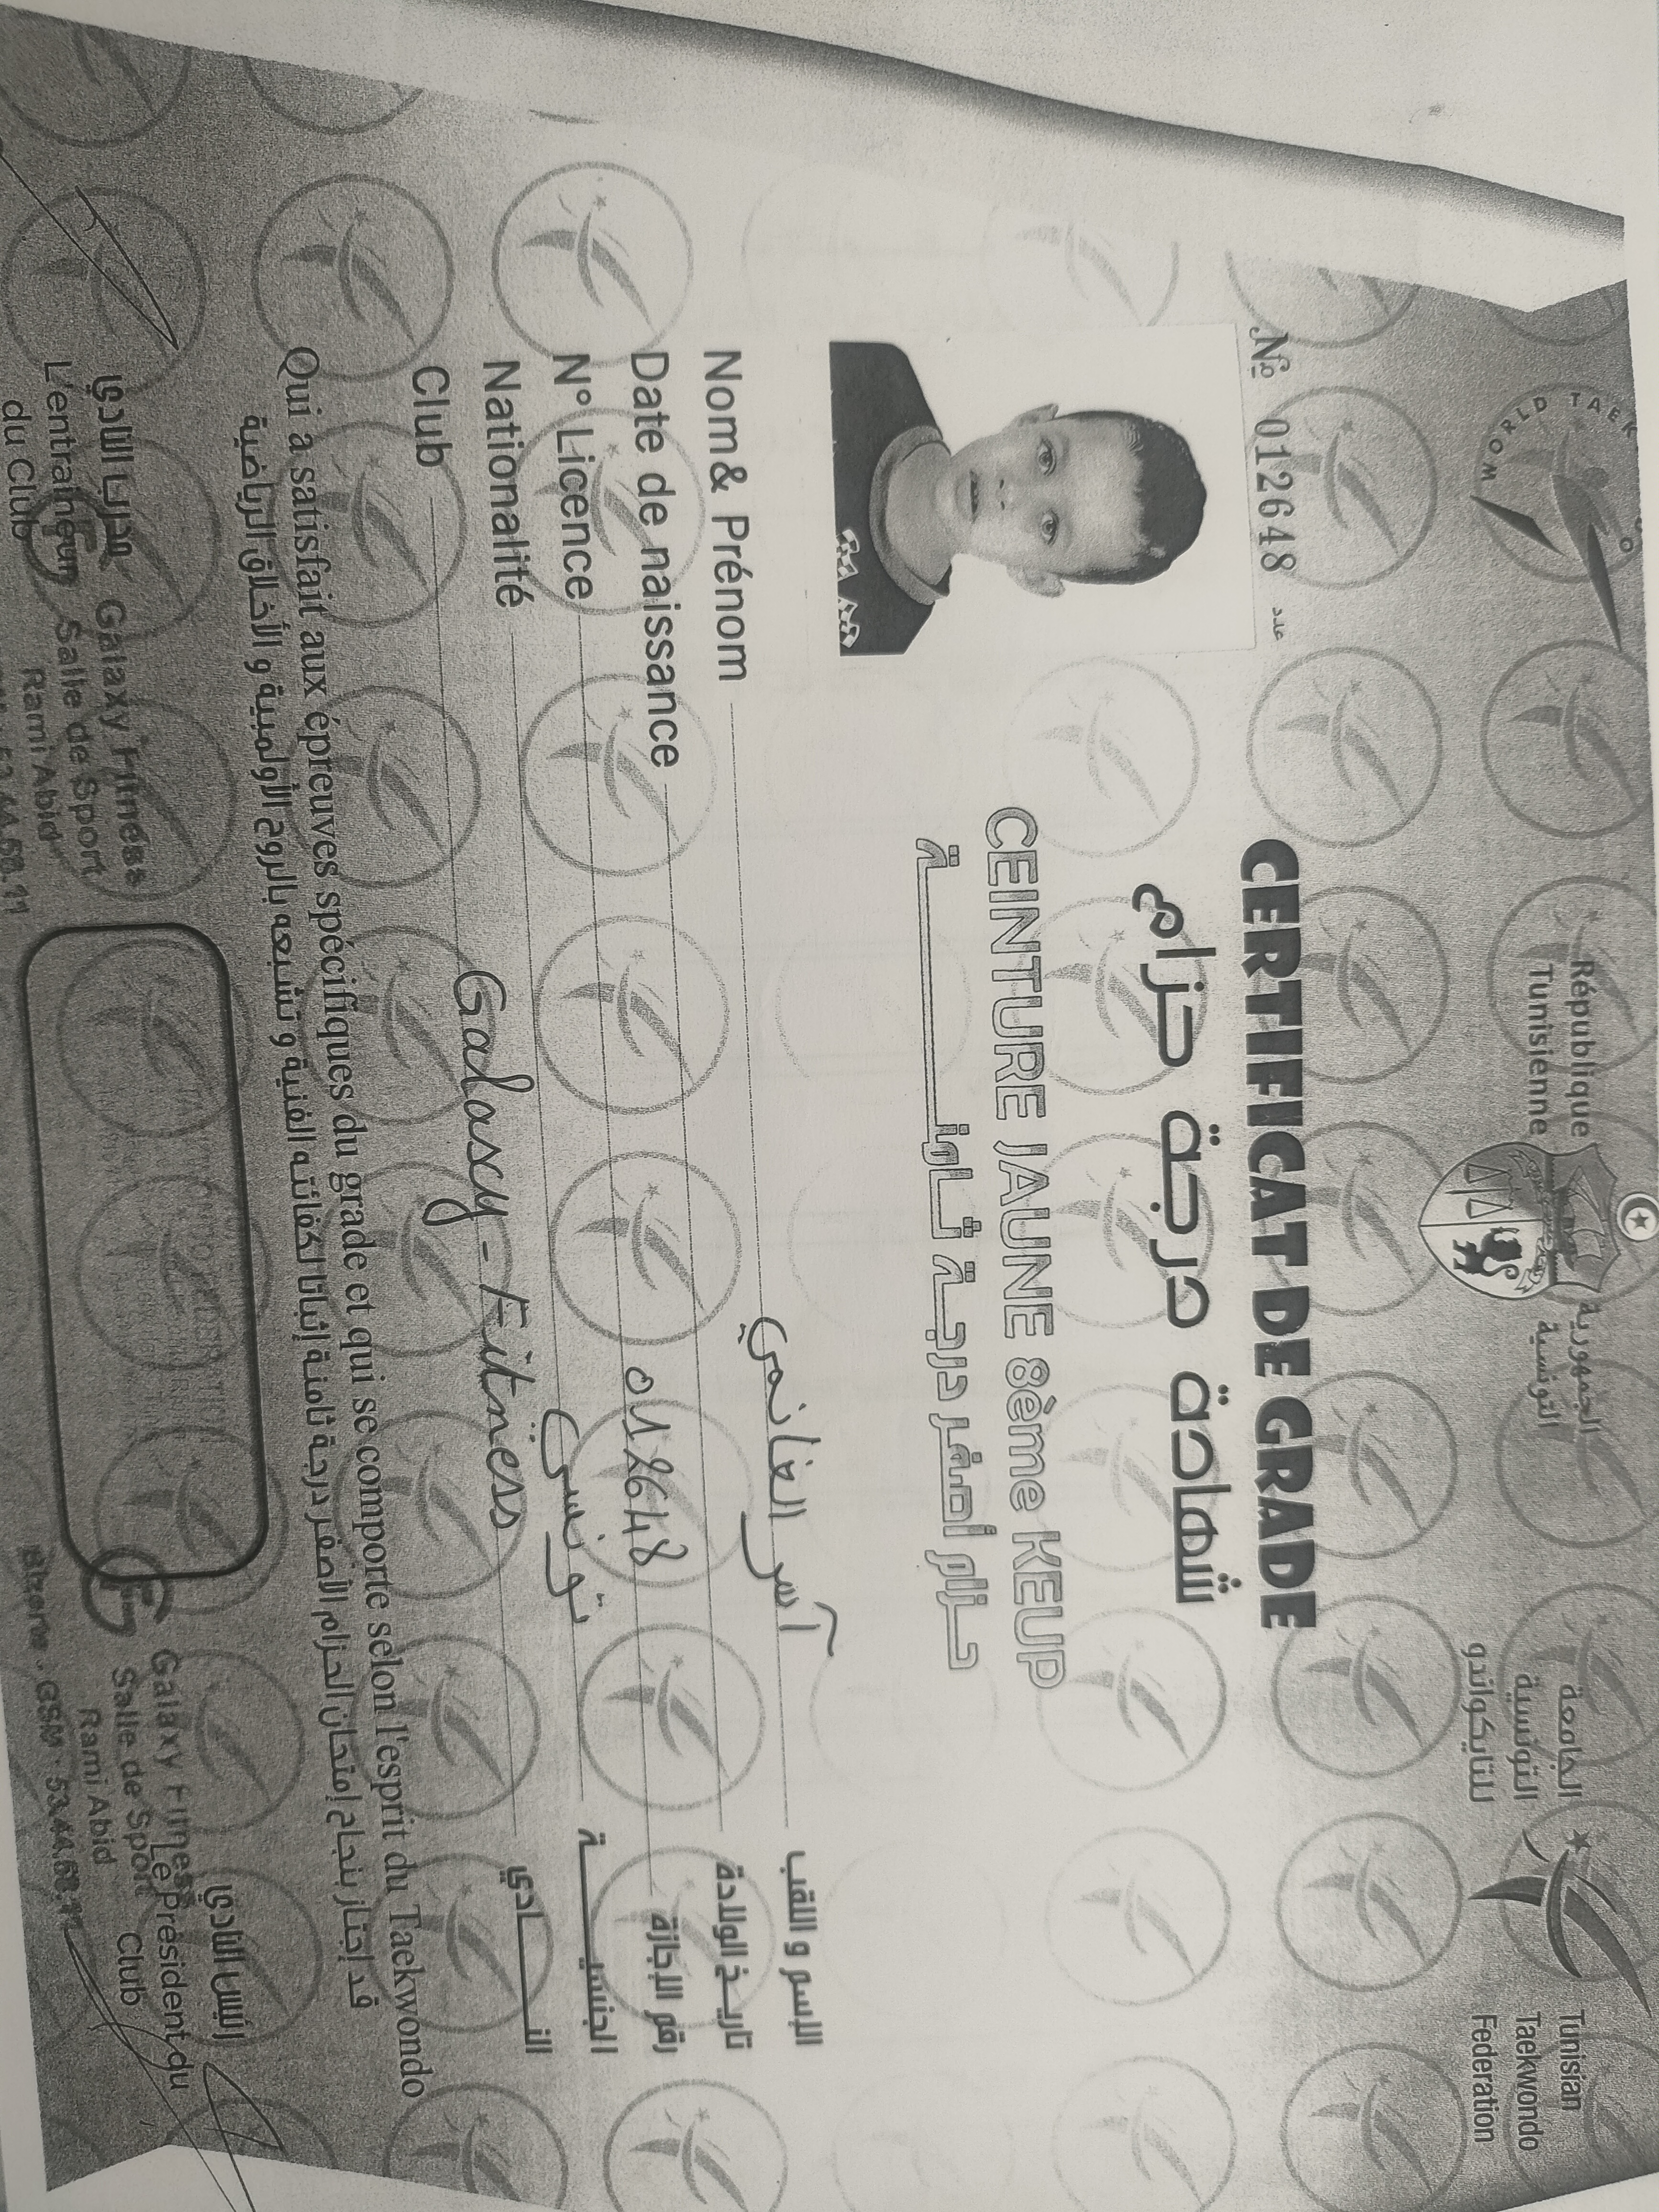 WORLD TAEK
République
Tunisienne
الجمهورية
التونسية
الجامعة
التونسية
للتايكواندو
Tunisian
Taekwondo
Federation
№ 012648 عدد
CERTIFICAT DE GRADE
شهادة درجة حزام
CEINTURE JAUNE 8ème KEUP
حزام أصفر درجة ثامنة
Nom& Prénom آسر الغانمي الإسم و اللقب
Date de naissance تاريخ الولادة
N° Licence 012648 رقم الإجازة
Nationalité تونسي الجنسية
Club Galaxy-Fitness النادي
Qui a satisfait aux épreuves spécifiques du grade et qui se comporte selon l'esprit du Taekwondo
قد إجتاز بنجاح إمتحان الحزام الأصفر درجة ثامنة إثباتا لكفائته الفنية و تشبعه بالروح الأولمبية و الأخلاق الرياضية
مدرب النادي
L'entraîneur
du Club
Galaxy Fitness
Salle de Sport
Rami Abid
رئيس النادي
Le Président du
Club
Galaxy Fitness
Salle de Sport
Rami Abid
Bizerte . GSM : 53.44.68.11